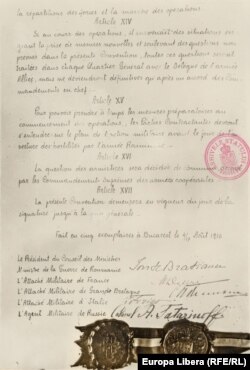 la répartitions des prises et la marche des opérations.
Article XIV
Si au cours des opérations, il survenait des situations exi-
geant la prise de mesures nouvelles et soulevant des questions non
prévues dans la présente Convention, toutes ces questions seront
traitées dans chaque Quartier Général avec le Délégué de l'armée
Alliée, mais ne deviendront définitives qu'après un accord des Com-
mandements en chef.
Article XV
Pour pouvoir prendre à temps les mesures préparatoires au
commencement des opérations, les Parties Contractantes devront
s'entendre sur le plan de l'action militaire avant le jour de l'ou-
verture des hostilités par l'armée Roumaine.
Article XVI
La question des armistices sera décidée de commun accord
par les Commandements Suprêmes des armées coopérantes.
Article XVII
La présente Convention demeurera en vigueur du jour de la
signature jusqu'à la paix générale.
Fait en cinq exemplaires à Bucarest le 4/17 Août 1916
Le Président du Conseil des Ministres
Ministre de la Guerre de Roumanie
L'Attaché Militaire de France
L'Attaché Militaire de Grande Bretagne
L'Attaché Militaire d'Italie
L'Agent Militaire de Russie
Colonel A. Tatarinoff
Europa Libera (RFE/RL)